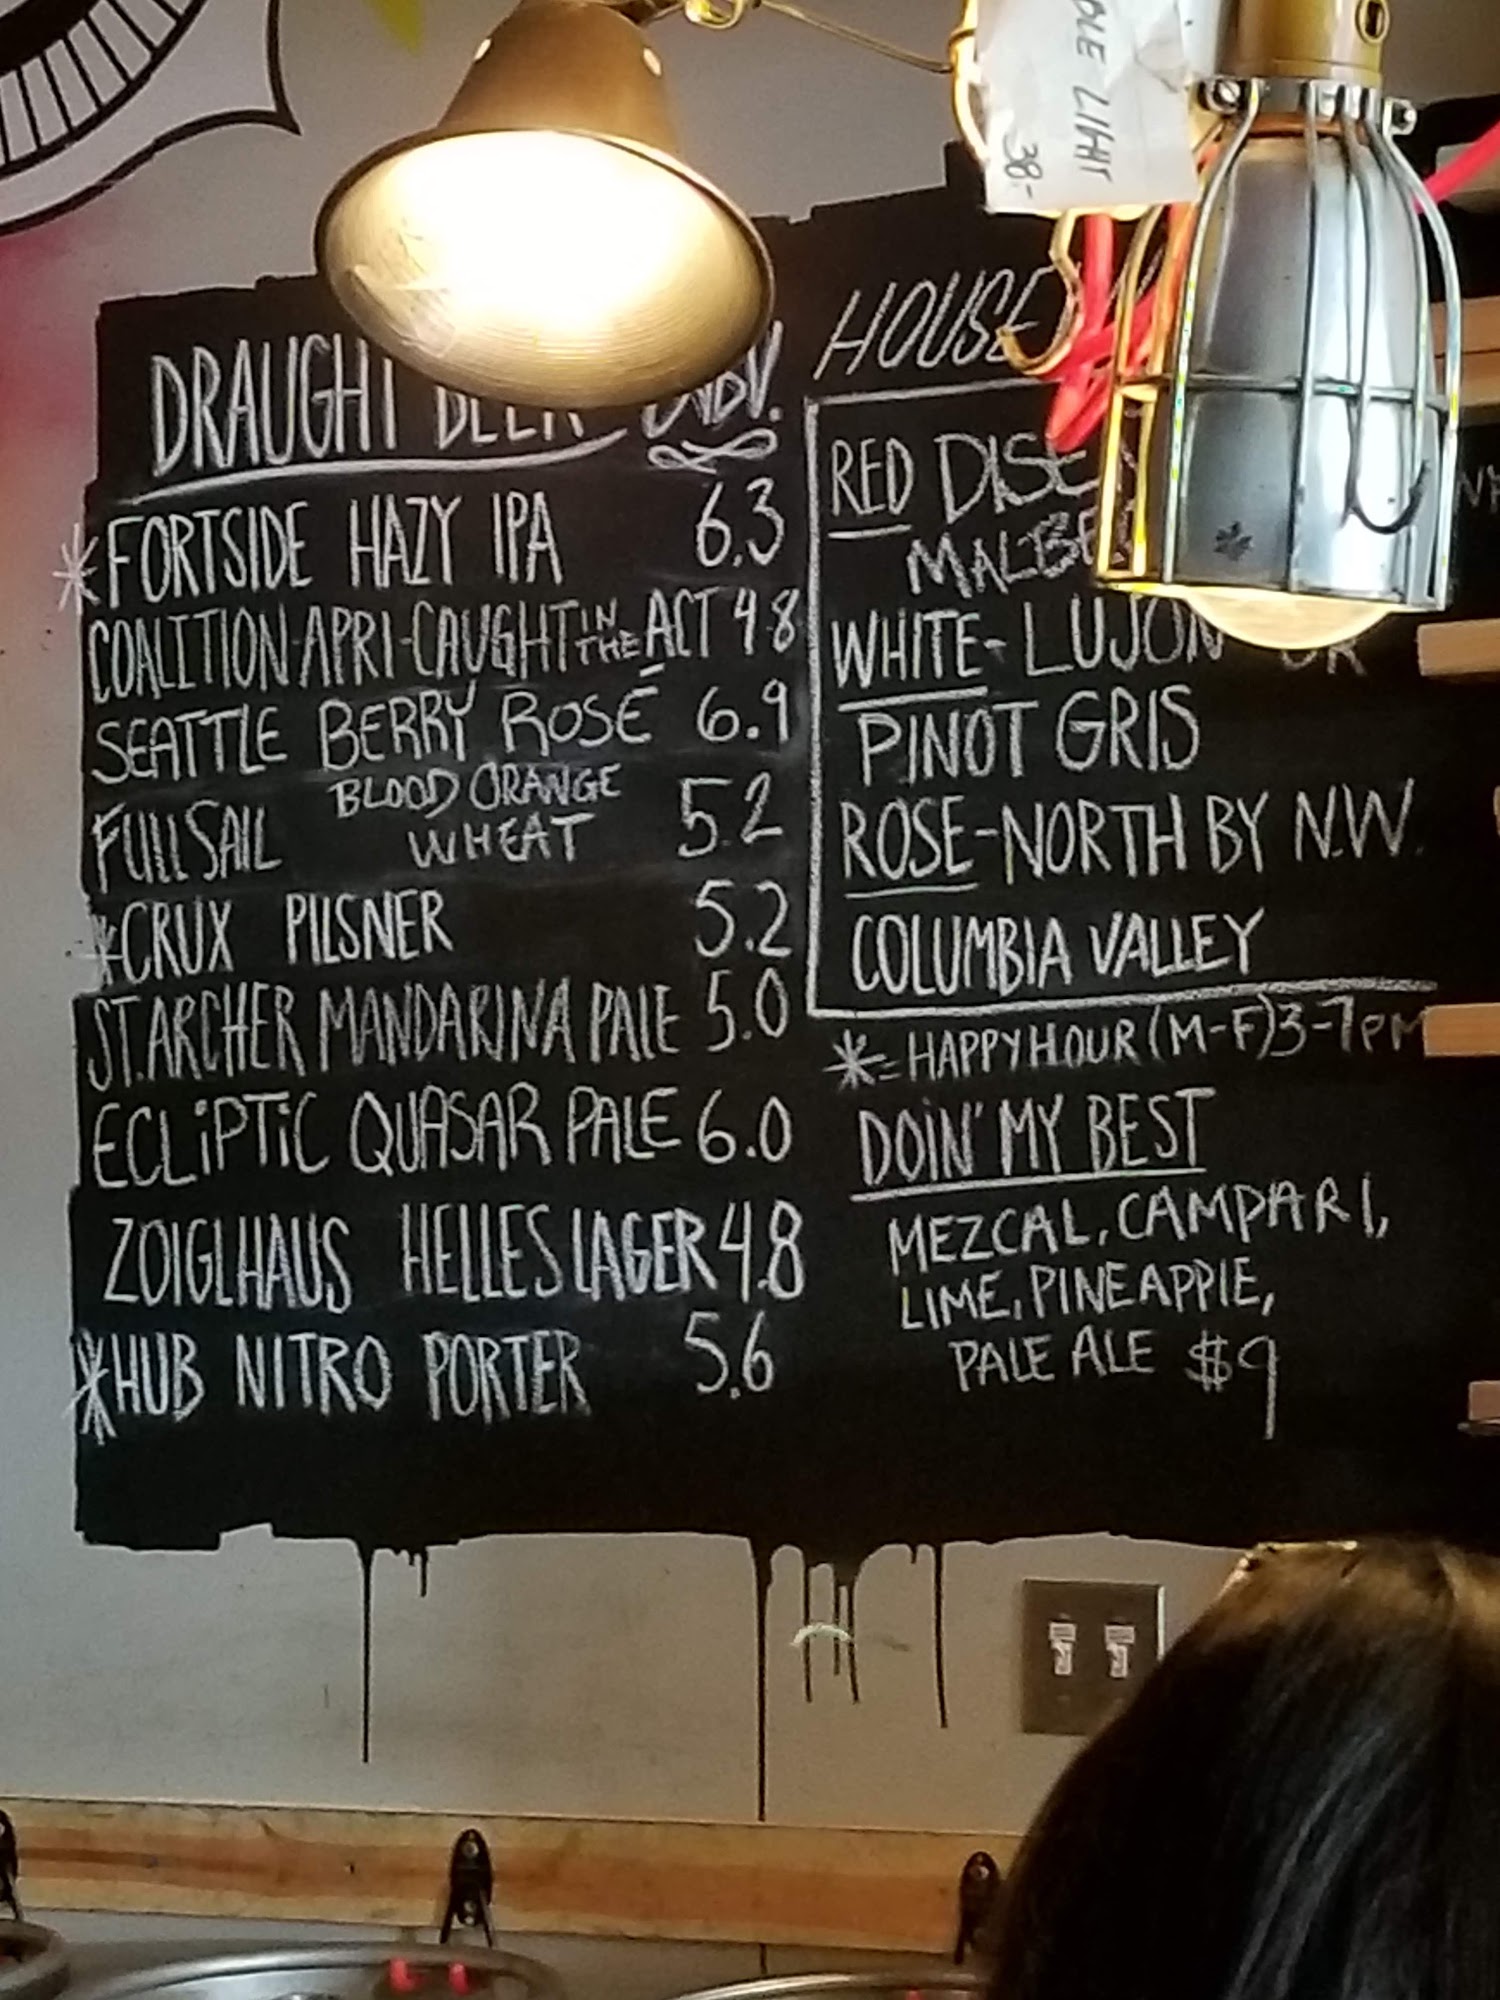 DRAUGHT BEER ABV.
*FORTSIDE HAZY IPA 6.3
COALITION-APRI-CAUGHT IN THE ACT 4.8
SEATTLE BERRY ROSÉ 6.9
FULL SAIL BLOOD ORANGE WHEAT 5.2
*CRUX PILSNER 5.2
ST. ARCHER MANDARINA PALE 5.0
ECLIPTIC QUASAR PALE 6.0
ZOIGLHAUS HELLES LAGER 4.8
*HUB NITRO PORTER 5.6
HOUSE
RED
MALBEC
WHITE- LUJON OR
PINOT GRIS
ROSE-NORTH BY N.W.
COLUMBIA VALLEY
*=HAPPY HOUR (M-F) 3-7PM
DOIN' MY BEST
MEZCAL, CAMPARI,
LIME, PINEAPPLE,
PALE ALE $9
38.-